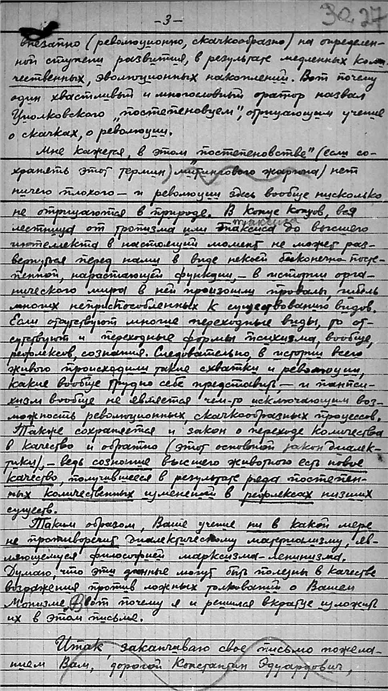 -3-
30. 27
внезапно (революционно, скачкообразно) на определен-
ной ступени развития, в результате медленных коли-
чественных, эволюционных накоплений. Вот почему
один хвастливый и многословный оратор назвал
Циолковского "постепеновцем", отрицающим учение
о скачках, о революции.
Мне кажется, в этом "постепеновстве" (если со-
хранять этот термин митингового жаргона) нет
ничего плохого — и революции здесь вообще нисколько
не отрицаются в природе. В конце концов, вся
лестница от тропизма или таксиса до высшего
интеллекта в настоящий момент не может раз-
вернуться перед нами в виде некоей бесконечно посте-
пенной, нарастающей функции, — в истории орга-
нического мира в ней произошли провалы, гибель
многих неприспособленных к существованию видов.
Если отсутствуют многие переходные виды, то от-
сутствуют и переходные формы психизма, вообще,
рефлексов, сознания. Следовательно, в истории всего
живого происходили такие схватки и революции,
какие вообще трудно себе представить — и панпси-
хизм вообще не является чем-то исключающим воз-
можность революционных скачкообразных процессов.
Также сохраняется и закон о переходе количества
в качество и обратно (этот основной закон диалек-
тики), — ведь сознание высшего животного есть новое
качество, получившееся в результате ряда постепен-
ных количественных изменений в рефлексах низших
существ.
Таким образом, Ваше учение ни в какой мере
не противоречит диалектическому материализму, яв-
ляющемуся философией марксизма-ленинизма.
Думаю, что эти данные могут быть полезны в качестве
возражения против ложных толкований о Вашем
Монизме. Вот почему я и решился вкратце изложить
их в этом письме.
Итак заканчиваю свое письмо пожела-
нием Вам, дорогой Константин Эдуардович,